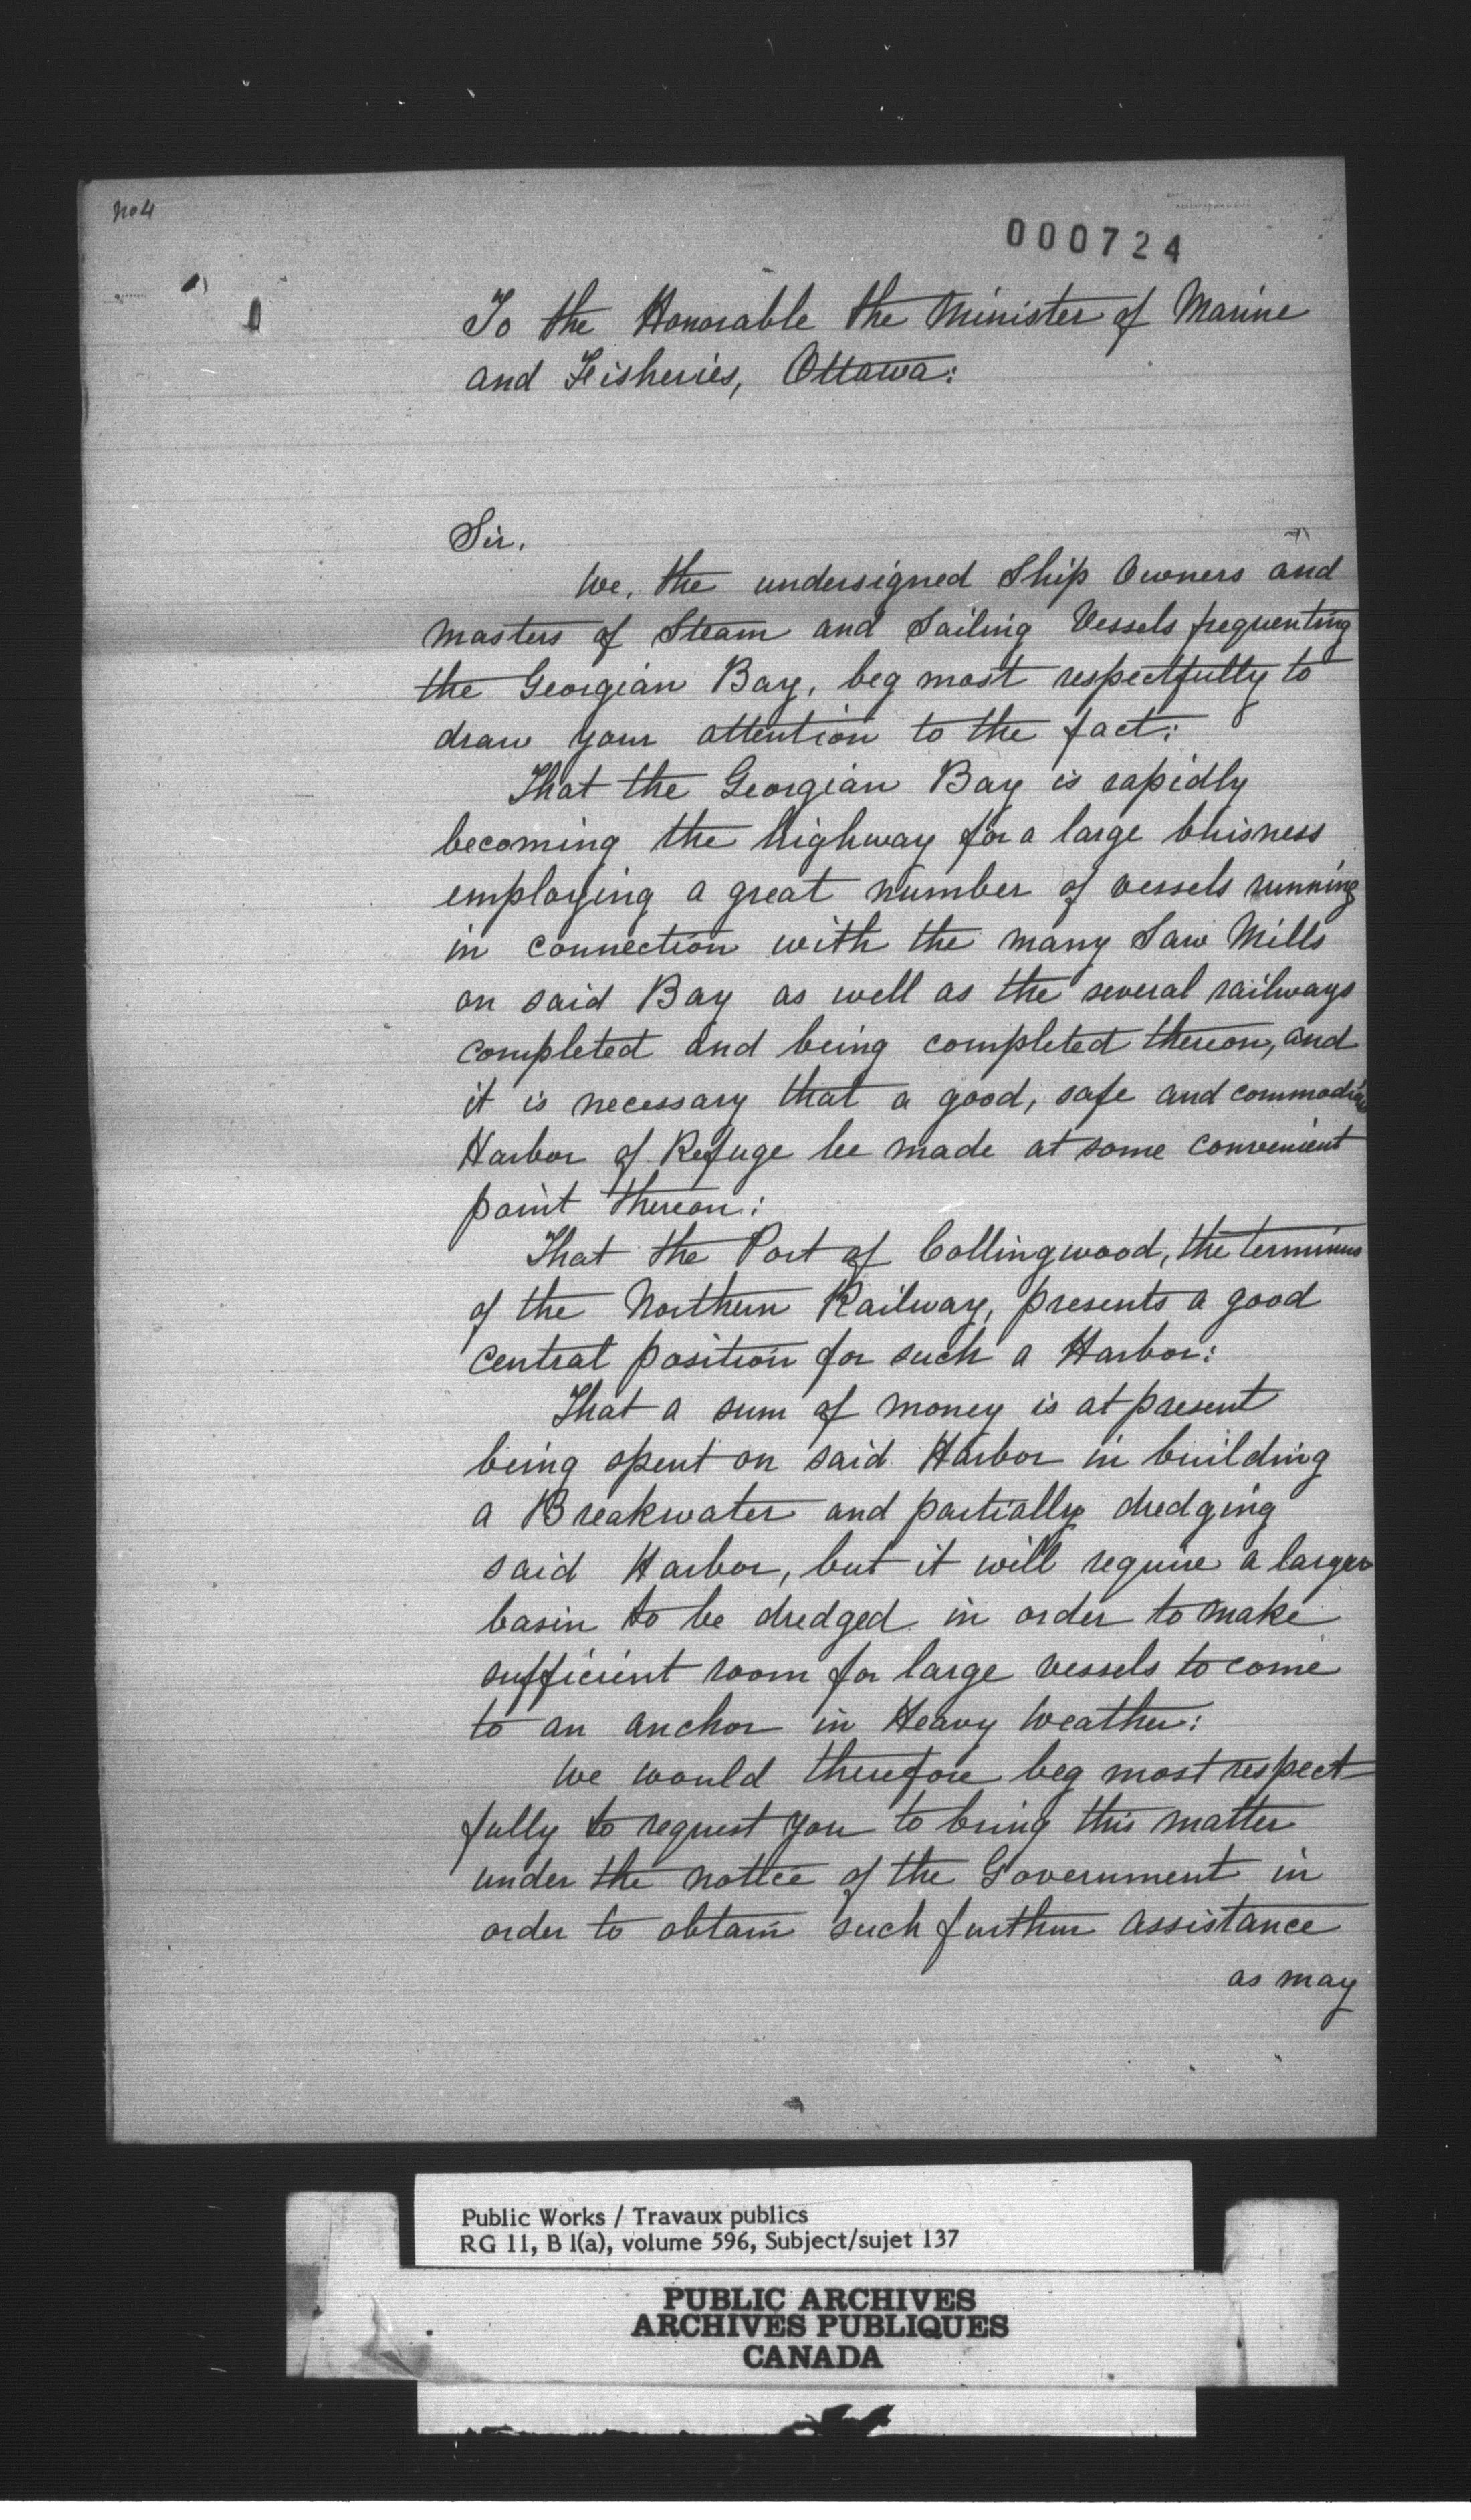 No 4
000724
To the Honorable the Minister of Marine
and Fisheries, Ottawa:
Sir,
We, the undersigned Ship Owners and
Masters of Steam and Sailing Vessels frequenting
the Georgian Bay, beg most respectfully to
draw your attention to the fact:
That the Georgian Bay is rapidly
becoming the highway for a large buisness
employing a great number of vessels running
in connection with the many Saw Mills
on said Bay as well as the several railways
completed and being completed thereon, and
it is necessary that a good, safe and commodious
Harbor of Refuge be made at some convenient
point thereon:
That the Port of Collingwood, the terminus
of the Northern Railway, presents a good
central position for such a Harbor:
That a sum of money is at present
being spent on said Harbor in building
a Breakwater and partially dredging
said Harbor, but it will require a larger
basin to be dredged in order to make
sufficient room for large vessels to come
to an anchor in Heavy Weather:
We would therefore beg most respect-
fully to request you to bring this matter
under the notice of the Government in
order to obtain such further assistance
as may
Public Works / Travaux publics
RG 11, B 1(a), volume 596, Subject/sujet 137
PUBLIC ARCHIVES
ARCHIVES PUBLIQUES
CANADA